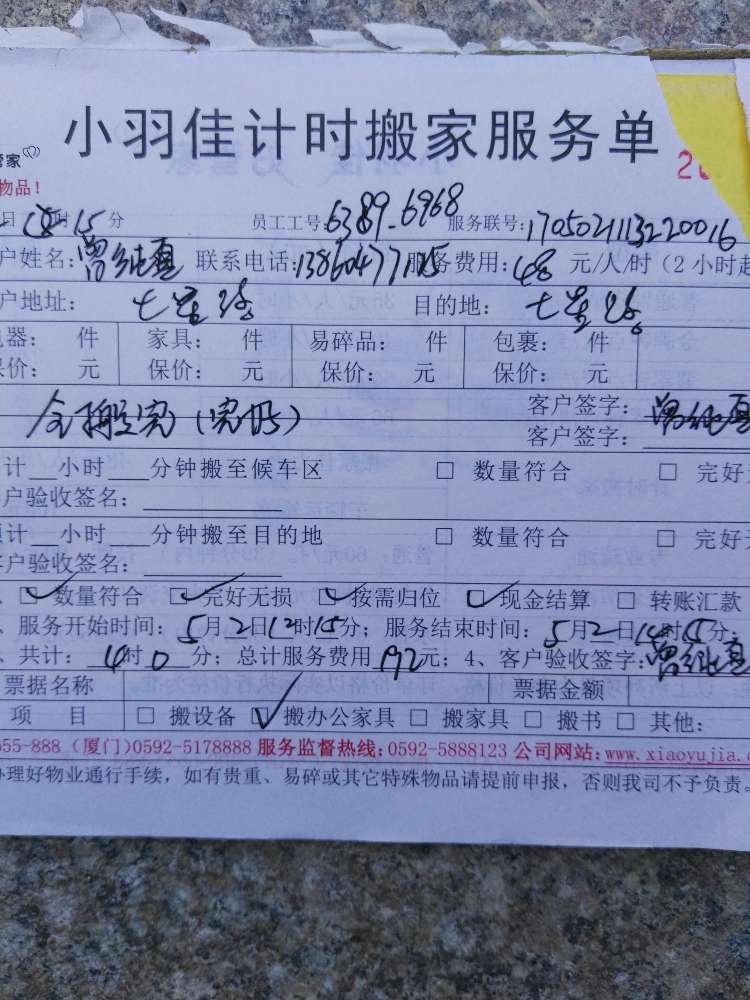 小羽佳计时搬家服务单
管家
物品！
日 时15分 员工工号:6389-6968 服务联号:170502113220016
户姓名:曾纯真 联系电话: 服务费用:48 元/人/时（2小时起
户地址: 七星路 目的地: 七星路
电器: 件 家具: 件 易碎品: 件 包裹: 件
保价: 元 保价: 元 保价: 元 保价: 元
全搬完(完好) 客户签字: 曾纯真
客户签字:
计__小时___分钟搬至候车区 □ 数量符合 □ 完好
户验收签名:
预计__小时___分钟搬至目的地 □ 数量符合 □ 完好无
客户验收签名:
、☑数量符合 ☑完好无损 ☑按需归位 ☑现金结算 □ 转账汇款
、服务开始时间: 5月2日12时15分; 服务结束时间: 5月2日 时15分;
、共计: 4时0分; 总计服务费用192元; 4、客户验收签字:曾纯真
票据名称 票据金额
项 目 □ 搬设备 ☑搬办公家具 □ 搬家具 □ 搬书 □ 其他:
055-888（厦门)0592-5178888 服务监督热线:0592-5888123 公司网站:www.xiaoyujia.
办理好物业通行手续，如有贵重、易碎或其它特殊物品请提前申报，否则我司不予负责。